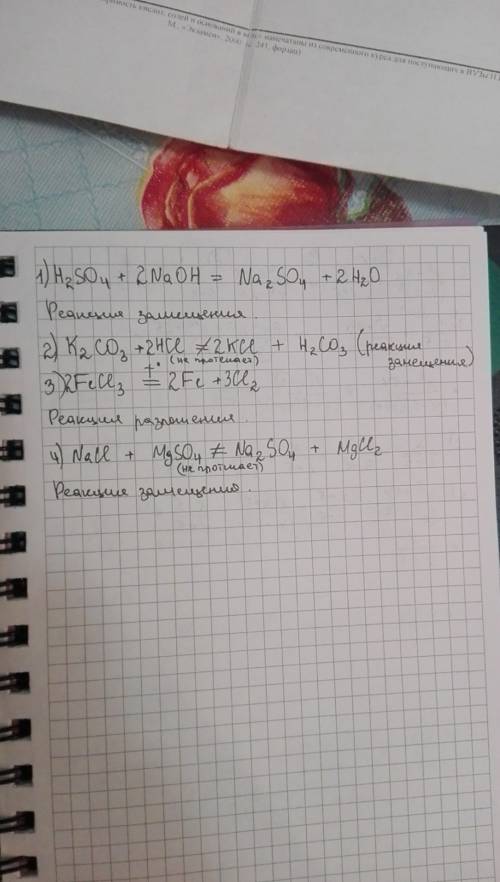 кислот, солей и оснований в воде напечатаны из современного курса для поступающих в ВУЗы
М., «Экзамен», 2000 (с. 241, форзац)
1) H₂SO₄ + 2NaOH = Na₂SO₄ + 2H₂O
Реакция замещения.
2) K₂CO₃ + 2HCl ≠ 2KCl + H₂CO₃ (реакция
(не протекает) замещения)
3) 2FeCl₃ =ᵗ° 2Fe + 3Cl₂
Реакция разложения.
4) NaCl + MgSO₄ ≠ Na₂SO₄ + MgCl₂
(не протикает)
Реакция замещения.